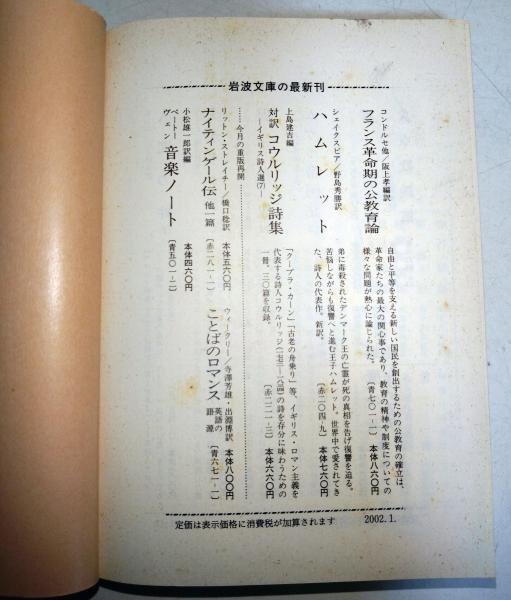 岩波文庫の最新刊
コンドルセ他/阪上孝編訳
フランス革命期の公教育論
自由と平等を支える新しい国民を創出するための公教育の確立は、
革命家たちの最大の関心事であり、教育の精神や制度についての
様々な問題が熱心に論じられた。
〔青七〇一-一〕 本体八六〇円
シェイクスピア/野島秀勝訳
ハムレット
弟に毒殺されたデンマーク王の亡霊が死の真相を告げ復讐を迫る。
苦悩しながらも復讐へと進む王子ハムレット。世界中で愛されてき
た、詩人の代表作。新訳。
〔赤二〇四-九〕 本体七六〇円
上島建吉編
対訳 コウルリッジ詩集
―イギリス詩人選(7)―
「クーブラ・カーン」「古老の舟乗り」等、イギリス・ロマン主義を
代表する詩人コウルリッジ(一七七二-一八三四)の詩を存分に味わうための
一冊。三〇篇を収録。
〔赤二二一-三〕 本体六六〇円
……今月の重版再開……
リットン・ストレイチー/橋口稔訳
ナイティンゲール伝 他一篇
〔赤二八一-二〕 本体五六〇円
ウィークリー/寺澤芳雄・出淵博訳
ことばのロマンス 英語の語源
〔青六七一-一〕 本体八〇〇円
小松雄一郎訳編
ベートーヴェン 音楽ノート
〔青五〇一-二〕 本体四六〇円
定価は表示価格に消費税が加算されます 2002.1.